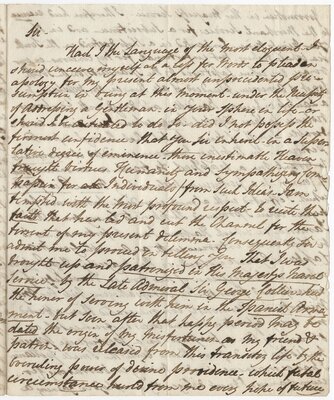 Sir
Had I the Language of the most eloquent I
should conceive myself at a loss for Words to plead an
apology for the present almost unprecedented
being at this moment under the Necessity
of addressing a Gentleman in Your Sphere of Life
should I not possess the
firmest confidence that You Sir inherit in a
lative degree of eminence those inestimable Heaven
Virtues Humanity and Sympathizing Com
passion for all Individuals from such Ideas I am
with the most profound respect to recite the
facts that have led and been the Channel for the
of my present dilemma Consequently Sir
admit me to proceed in telling You That I was
brought up and patronized in His Majestys Naval
Service by the Late Admiral Sir George
the honor of serving with him in the Spanish Arma
ment but Soon after that happy period may be
dated the origin of my Misfortunes as my friend &
patron was released from this transitory life by the
overruling power of Divine providence which fatal
circumstance hurled from me every hope of future